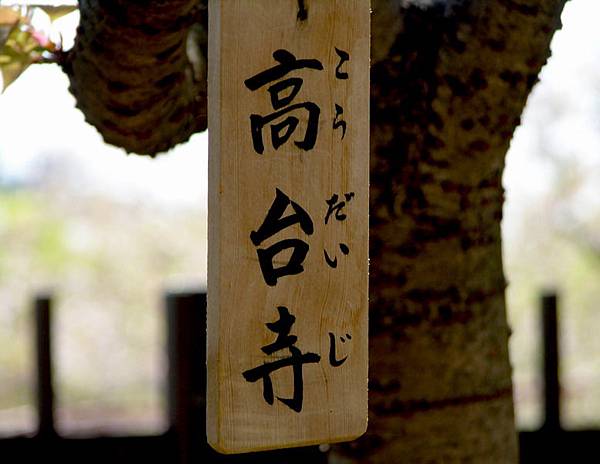 高台寺
こうだいじ